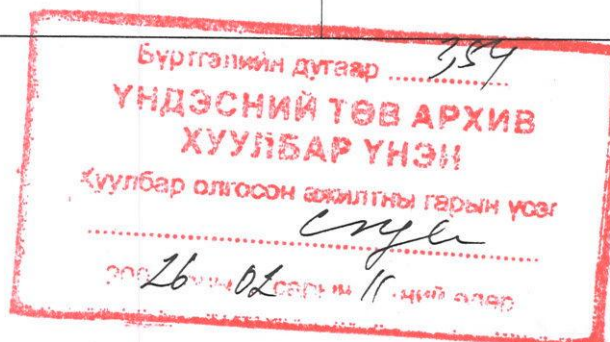 Бүртгэлийн дугаар ......354
ҮНДЭСНИЙ ТӨВ АРХИВ
ХУУЛБАР ҮНЭН
Хуулбар олгосон ажилтны гарын үсэг
26 02 сарын 11 ний өдөр